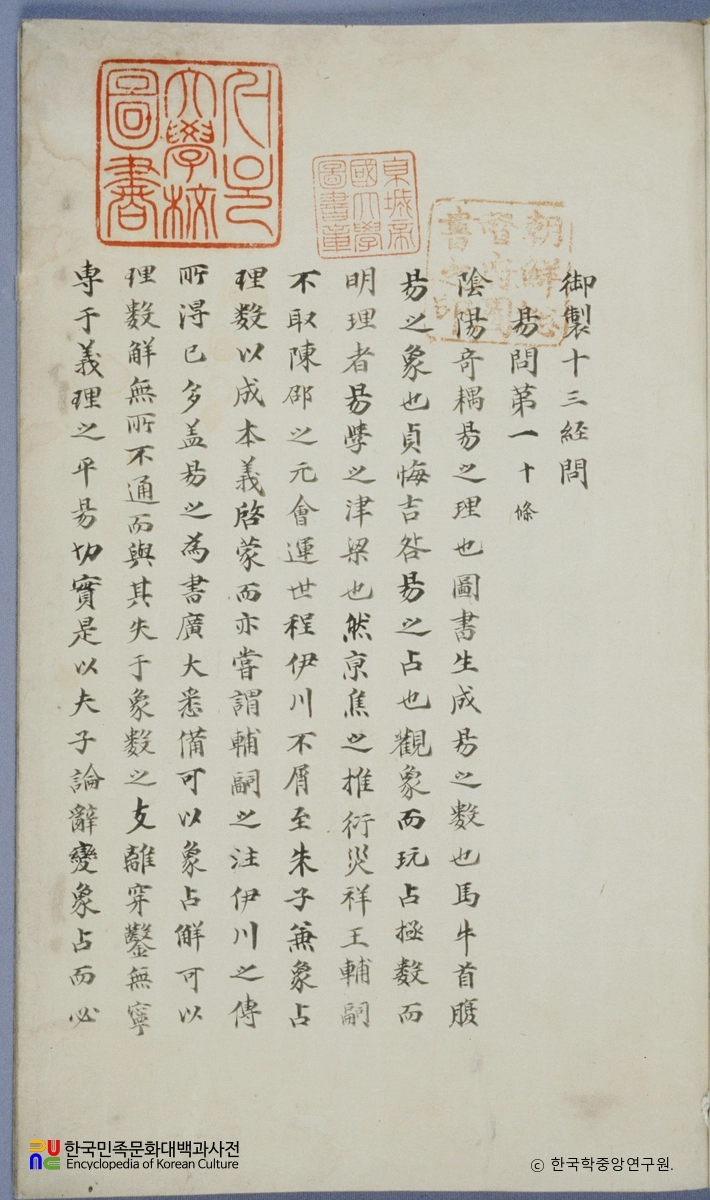 御製十三経問
易問第一 十條
陰陽奇耦易之理也圖書生成易之数也馬牛首腹
易之象也貞悔吉咎易之占也觀象而玩占極数而
明理者易學之津梁也然京焦之推衍災祥王輔嗣
不取陳邵之元會運世程伊川不屑至朱子兼象占
理数以成本義啓蒙而亦嘗謂輔嗣之注伊川之傳
所得已多盖易之為書廣大悉備可以象占觧可以
理数觧無所不通而與其失于象数之支離穿鑿無寧
専于義理之平易切實是以夫子論辭變象占而必
京城帝
國大學
圖書章
朝鮮総
督府圖
書之印
大學校
圖書
한국민족문화대백과사전
Encyclopedia of Korean Culture
ⓒ 한국학중앙연구원.